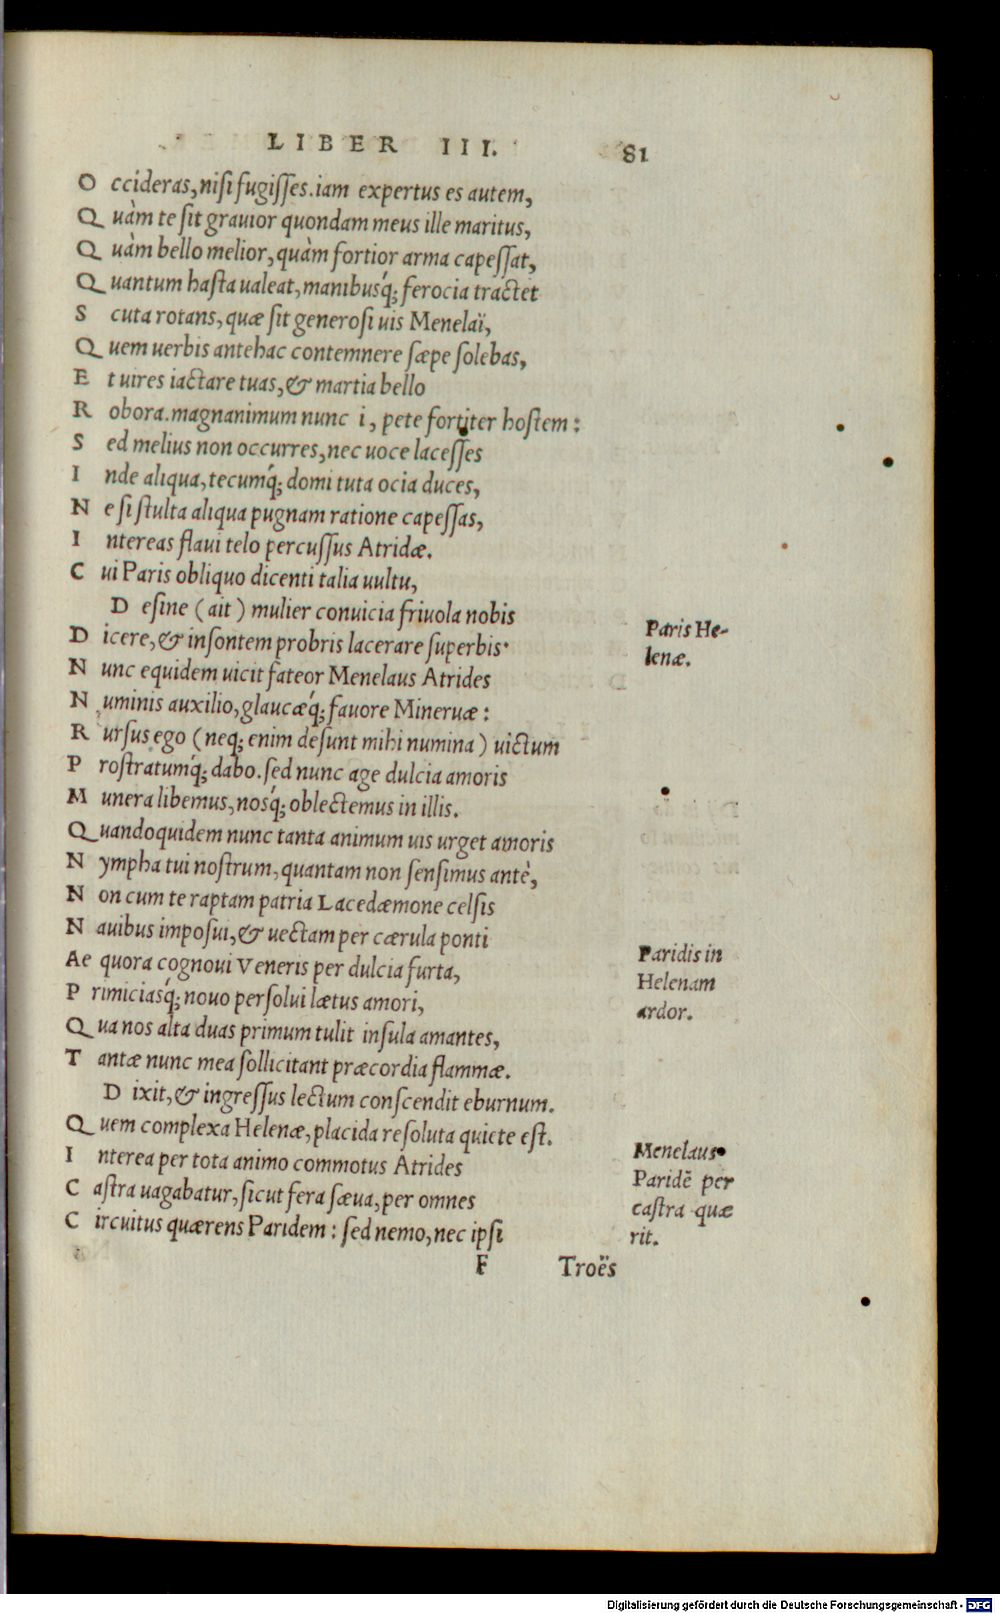 LIBER III. 81
Occideras, nisi fugisses. iam expertus es autem,
Quàm te sit grauior quondam meus ille maritus,
Quàm bello melior, quàm fortior arma capessat,
Quantum hasta ualeat, manibusq́; ferocia tractet
Scuta rotans, quæ sit generosi uis Menelaï,
Quem uerbis antehac contemnere sæpe solebas,
Et uires iactare tuas, & martia bello
Robora. magnanimum nunc i, pete fortiter hostem:
Sed melius non occurres, nec uoce lacesses
Inde aliqua, tecumq́; domi tuta ocia duces,
Ne si stulta aliqua pugnam ratione capessas,
Intereas flaui telo percussus Atridæ.
Cui Paris obliquo dicenti talia uultu,
Desine (ait) mulier conuicia friuola nobis
Paris He-
Dicere, & insontem probris lacerare superbis.
lenæ.
Nunc equidem uicit fateor Menelaus Atrides
Numinis auxilio, glaucæq́; fauore Mineruæ:
Rursus ego (neq; enim desunt mihi numina) uictum
Prostratumq́; dabo. sed nunc age dulcia amoris
Munera libemus, nosq́; oblectemus in illis.
Quandoquidem nunc tanta animum uis urget amoris
Nympha tui nostrum, quantam non sensimus antè,
Non cum te raptam patria Lacedæmone celsis
Nauibus imposui, & uectam per cærula ponti
Paridis in
Aequora cognoui Veneris per dulcia furta,
Helenam
Primiciasq́; nouo persolui lætus amori,
ardor.
Qua nos alta duas primum tulit insula amantes,
Tantæ nunc mea sollicitant præcordia flammæ.
Dixit, & ingressus lectum conscendit eburnum.
Quem complexa Helenæ, placida resoluta quiete est.
Menelaus
Interea per tota animo commotus Atrides
Paridē per
Castra uagabatur, sicut fera sæua, per omnes
castra quæ
Circuitus quærens Paridem: sed nemo, nec ipsi
rit.
F Troës
Digitalisierung gefördert durch die Deutsche Forschungsgemeinschaft - DFG